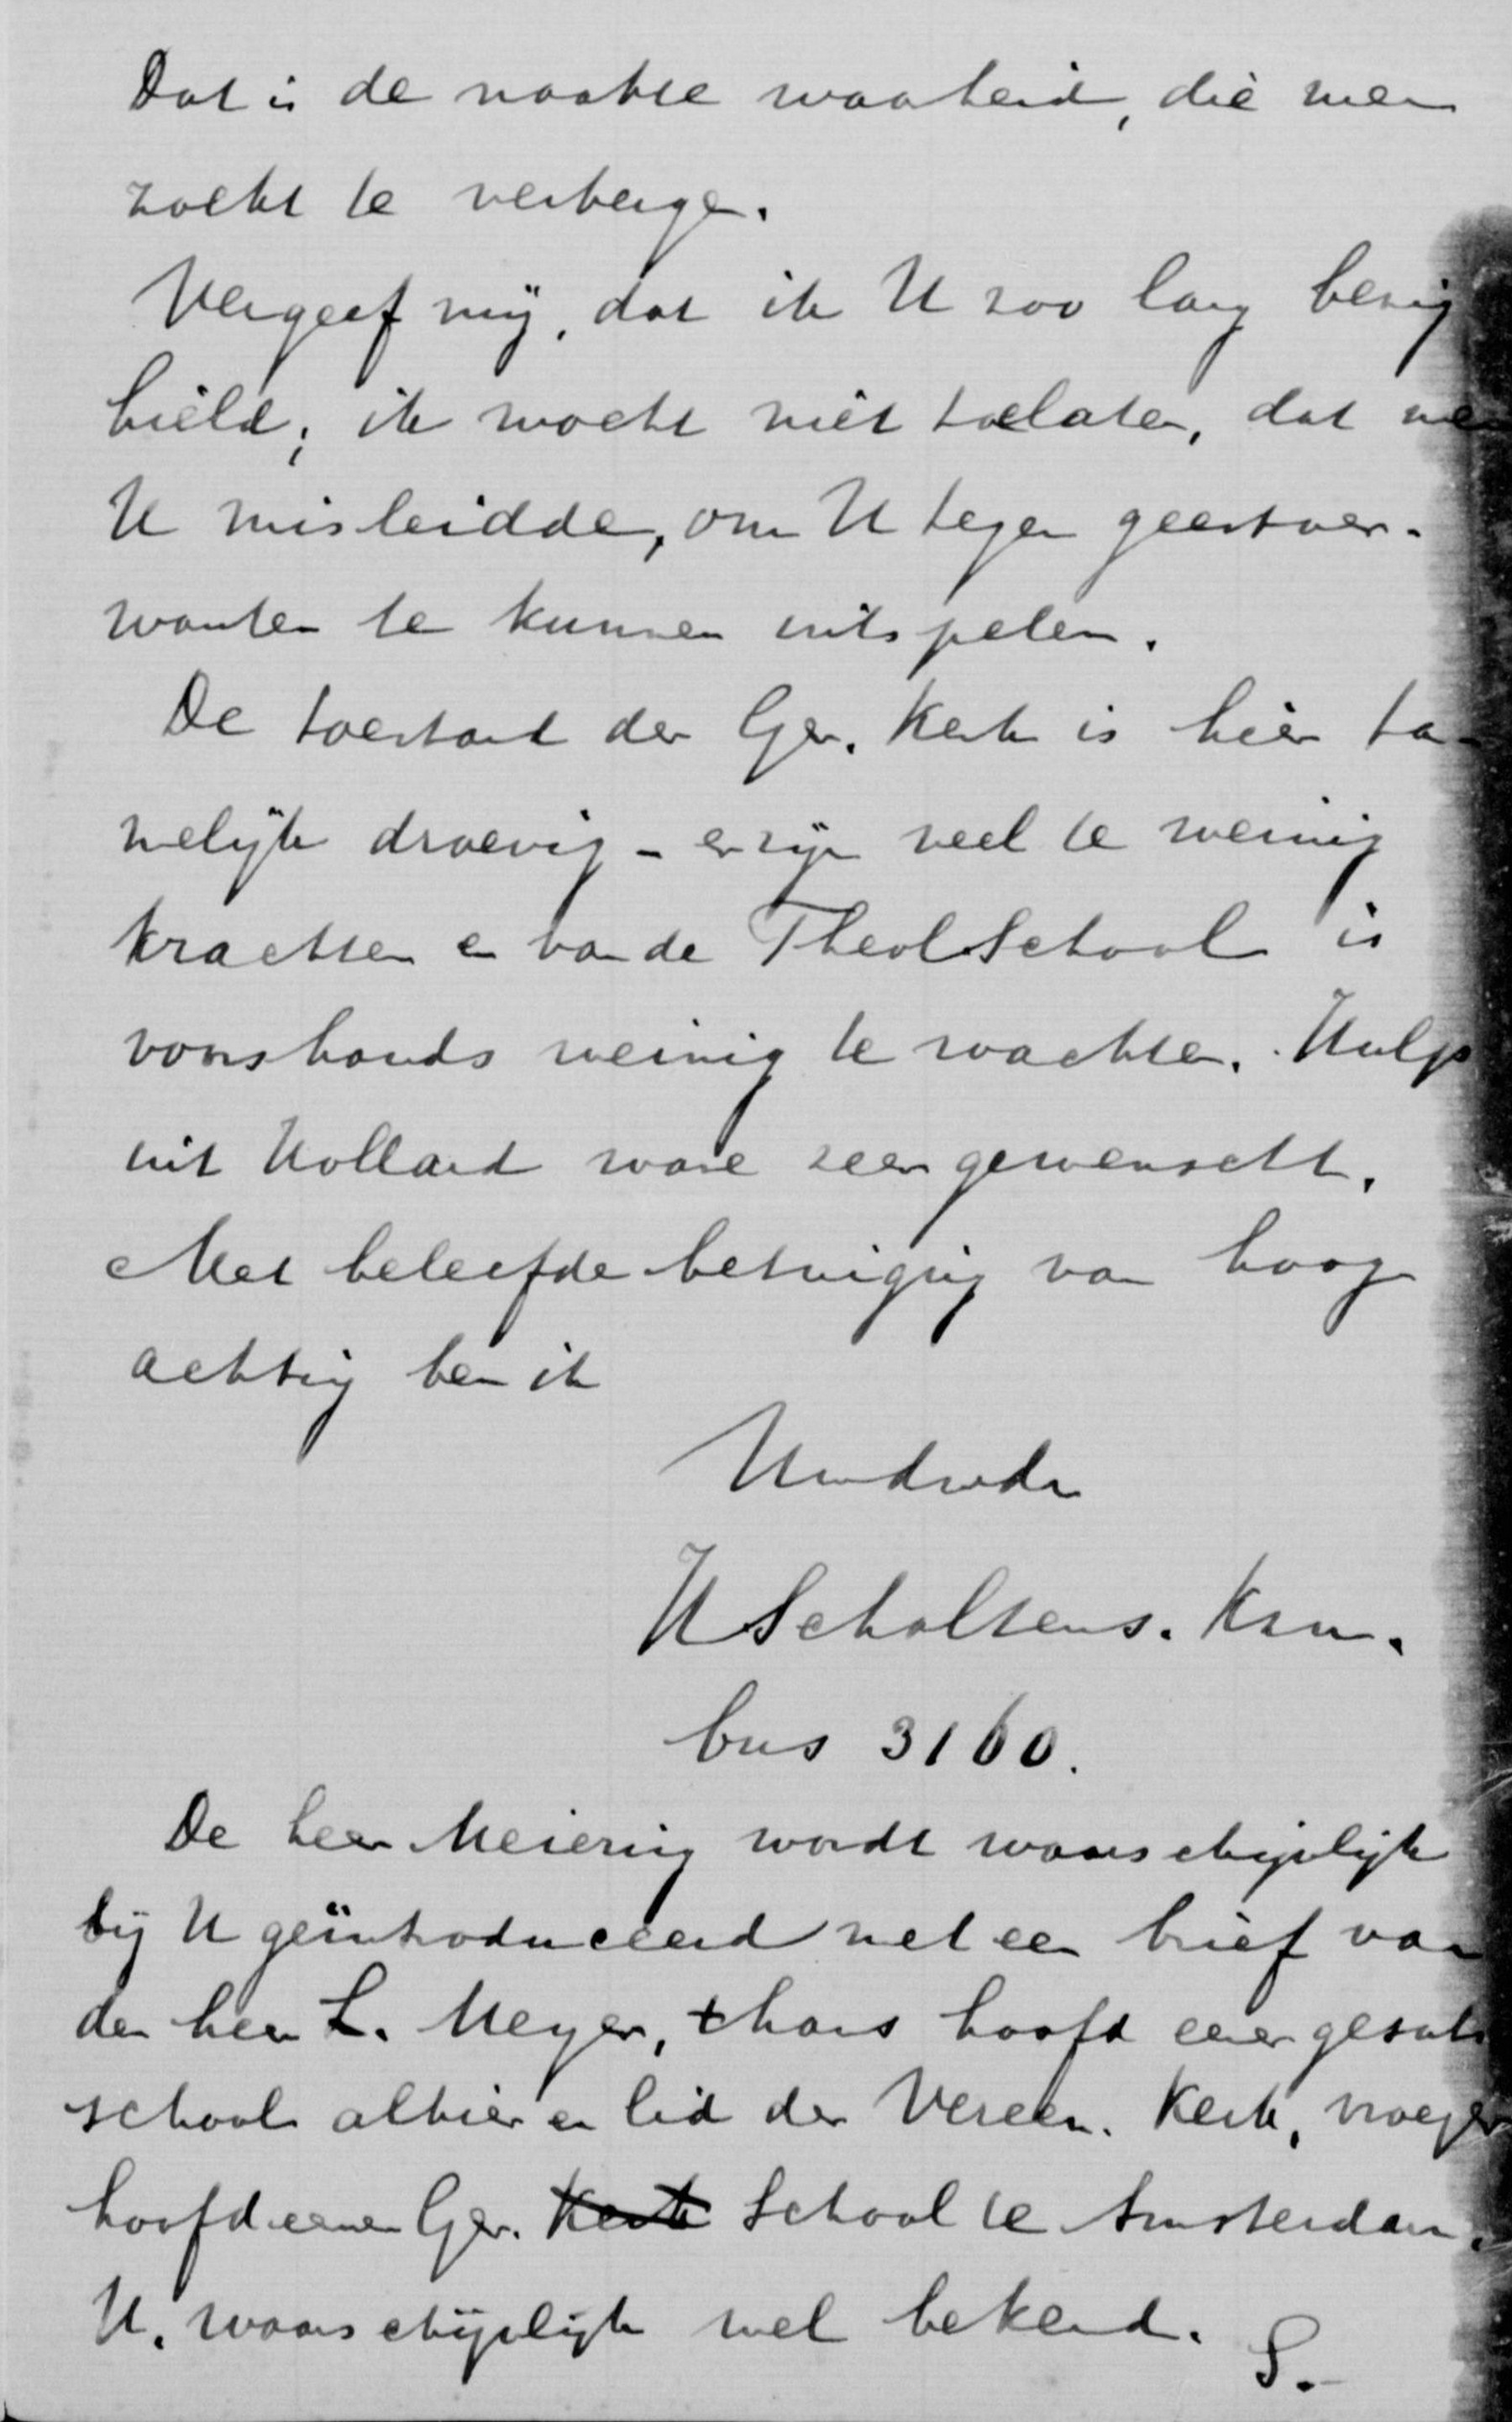 Dat is de naakte waarheid, die men
zoekt te verbergen.
Vergeef mij, dat ik U zoo lang bezig
hield; ik mocht niet toelaten, dat men
U misleidde, om U tegen geestver-
wanten te kunnen uitspelen.
De toestand der Ger. Kerk is hier ta-
melijk droevig - er zijn veel te weinig
krachten en van de Theol. School is
voorshands weinig te wachten. Hulp
uit Holland ware zeer gewenscht.
Met beleefde betuiging van hoog
achting ben ik
Uwdwdr
H Scholtens. Kzn.
bus 3160.
De heer Meiering wordt waarschijnlijk
bij U geïntroduceerd met een brief van
den heer L. Meyer, thans hoofd eener gesubs
school alhier en lid der Vereen. Kerk, vroeger
hoofd eener Ger. Kerk School te Amsterdam.
U. waarschijnlijk wel bekend. S.